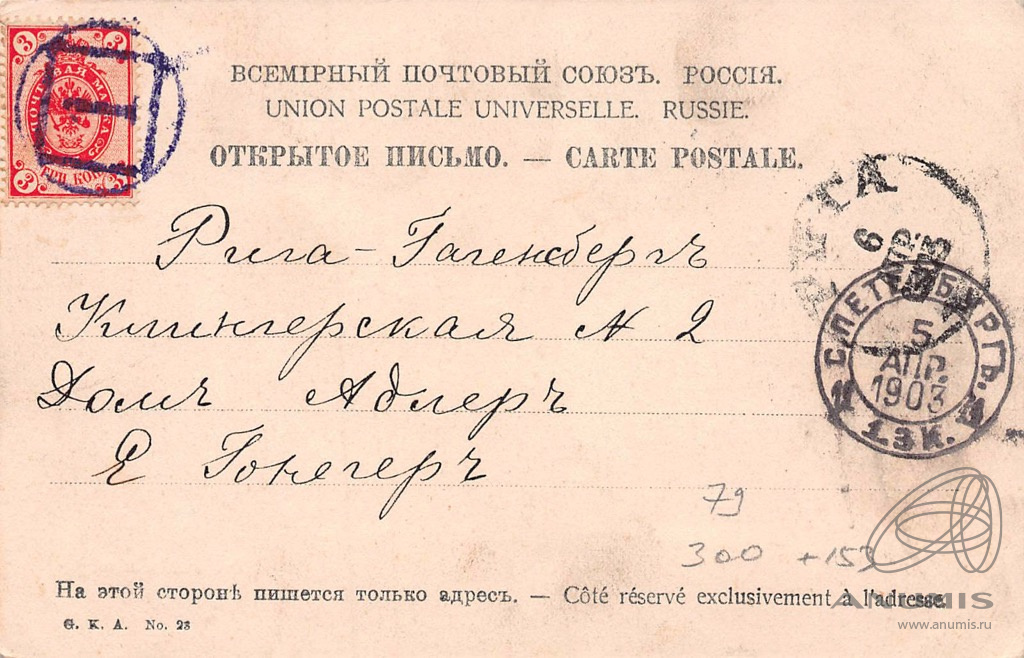 3 3
ПОЧТОВАЯ МАРКА
3 ТРИ КОП. 3
ВСЕМІРНЫЙ ПОЧТОВЫЙ СОЮЗЪ. РОССІЯ.
UNION POSTALE UNIVERSELLE. RUSSIE.
ОТКРЫТОЕ ПИСЬМО. — CARTE POSTALE.
6
Рига-Гагенсбергъ
С.ПЕТЕРБУРГЪ.
5
АПР.
1903
13 К.
Клингерская N 2
Домъ Адлеръ
Е Гонегеръ
79
300 +153
На этой сторонѣ пишется только адресъ. — Côté réservé exclusivement à l'adresse.
G. K. A. No. 23
ANUMIS
www.anumis.ru